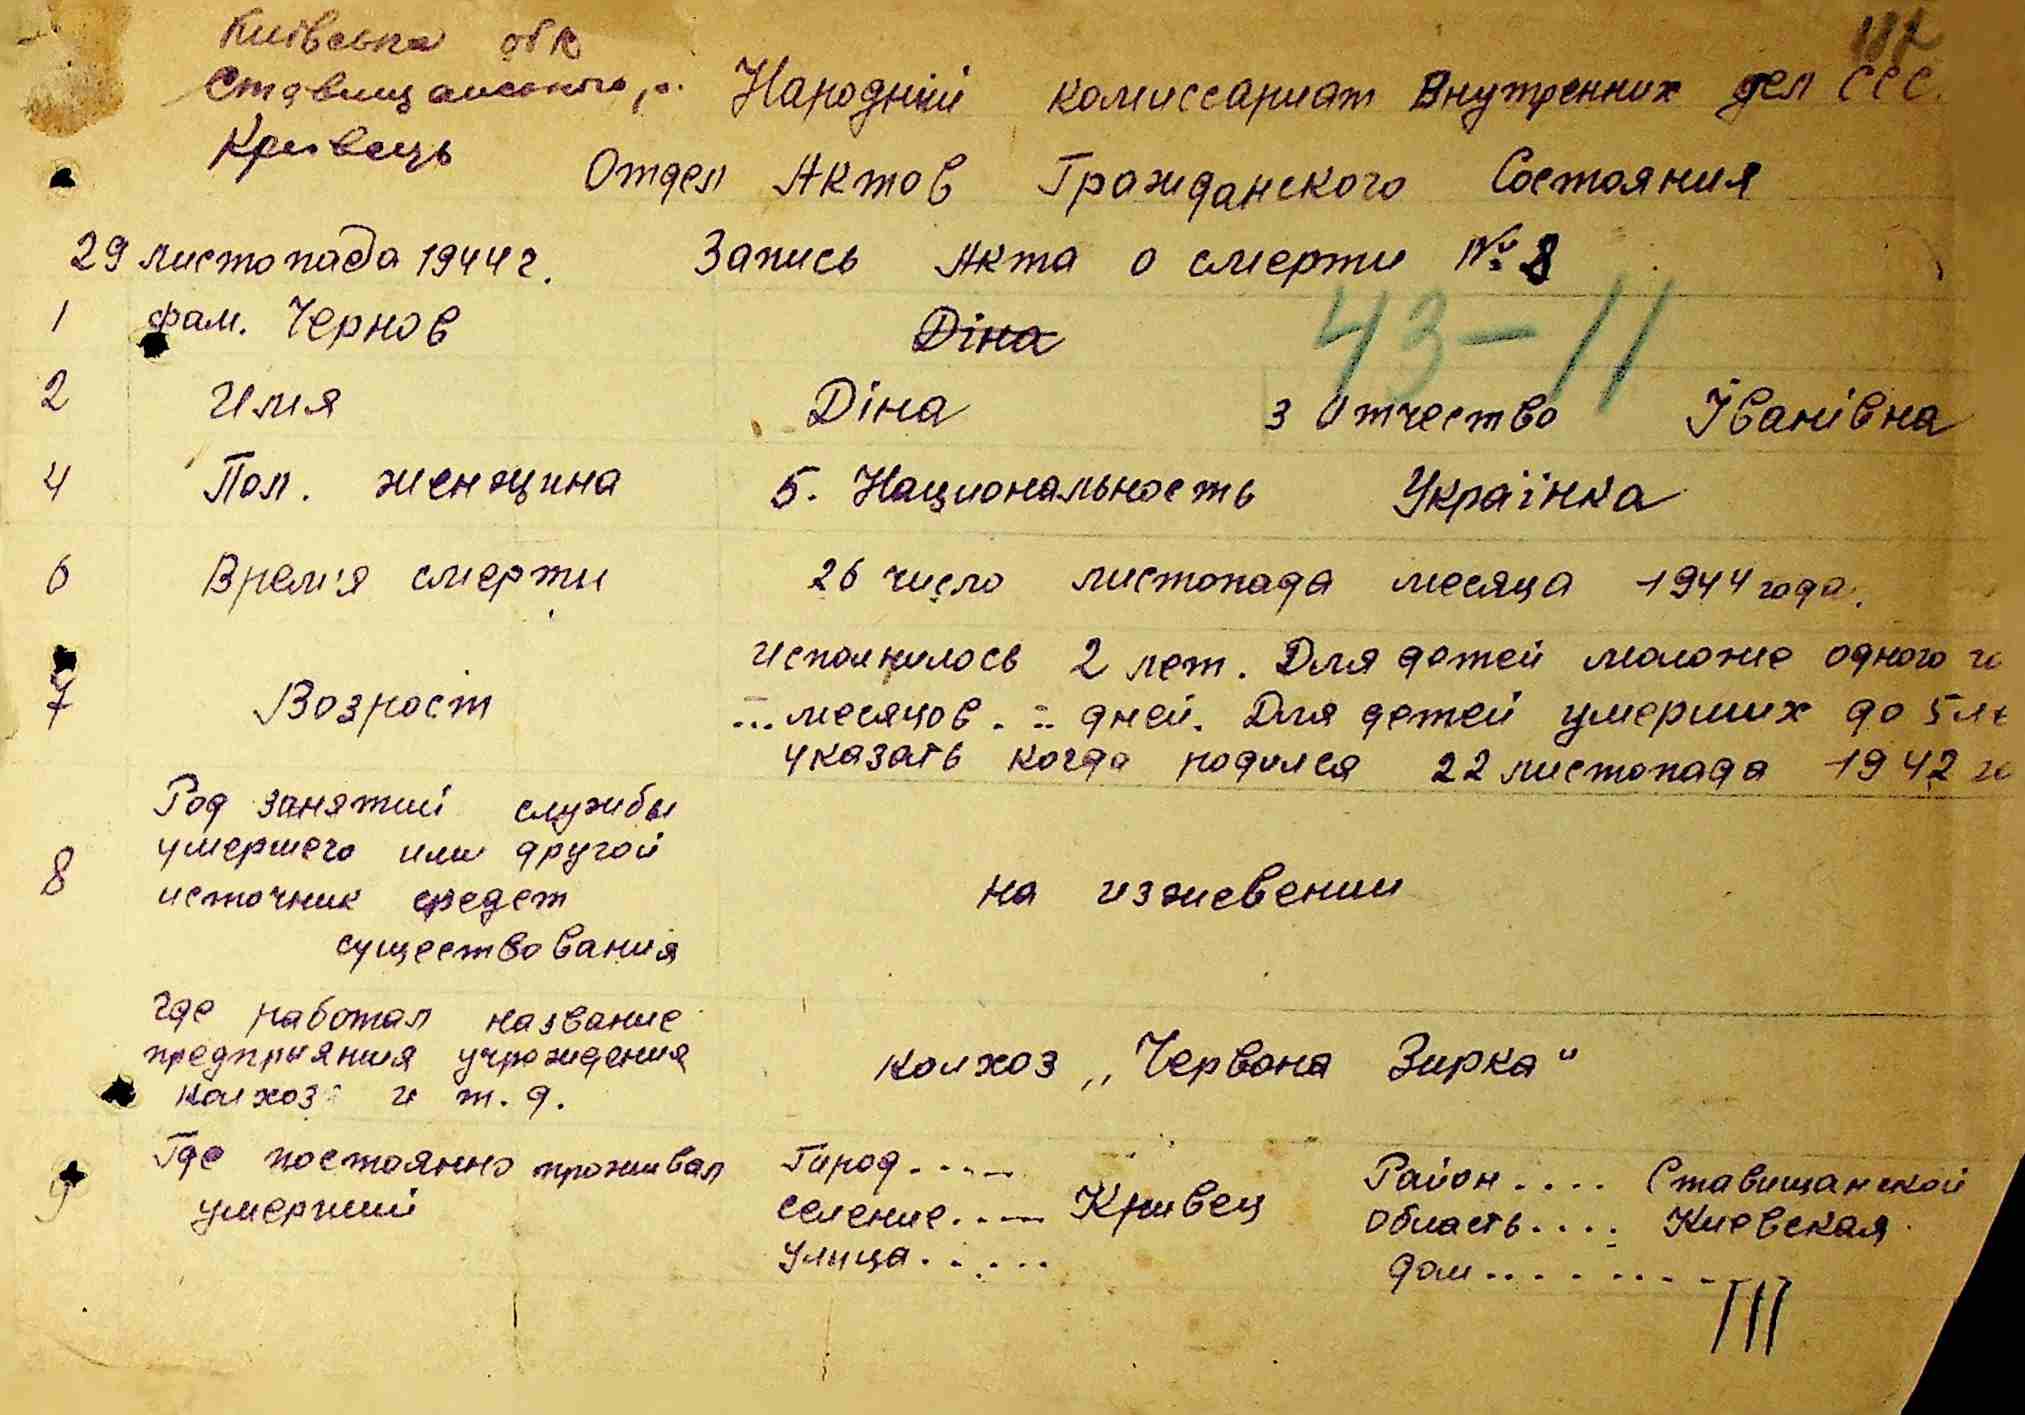 Київська обл
Ставищанського р.
Кривець
Народний комиссариат Внутренних дел ССС.
Отдел Актов Гражданского Состояния
29 листопада 1944 г. Запись Акта о смерти № 8
43-11
1 фам. Чернов Діна
2 Имя Діна 3 Отчество Іванівна
4 Пол. женщина 5. Национальность Українка
6 Время смерти 26 число листопада месяца 1944 года.
7 Возраст исполнилось 2 лет. Для детей моложе одного го
... месяцов. -- дней. Для детей умерших до 5 ле
указать когда родился 22 листопада 1942 го
8 Род занятий службы
умершего или другой
источник средст
существования
на иживении
где работал название
предприяния учрождения
колхоз и т. д.
колхоз „Червона Зирка"
9 Где постоянно проживал
умерший
Город..... Район.... Ставищанской
селение..... Кривец область.... Киевская
улица...... дом........
III